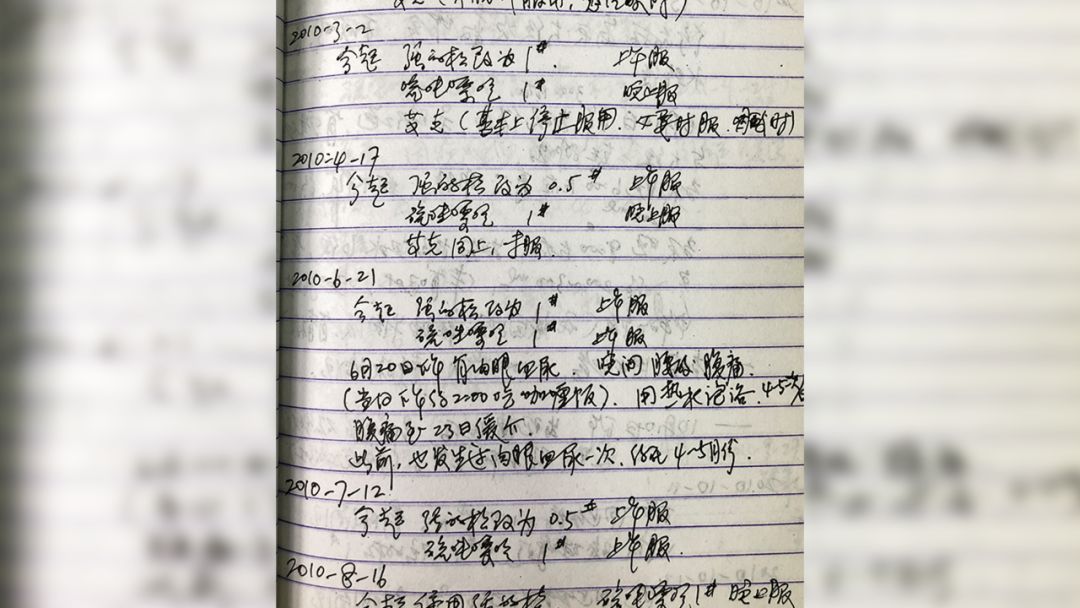 2010-3-2
今起 强的松改为 1# 上午服
硫唑嘌呤 1# 晚上服
艾克（基本上停止服用.必要时服.
2010-4-17
今起 强的松改为 0.5# 上午服
硫唑嘌呤 1# 晚上服
艾克同上,未服.
2010-6-21
今起 强的松改为 1# 上午服
硫唑嘌呤 1# 上午服
6月20日下午有肉眼血尿. 晚间腰酸腹痛
(当日下午约2:00吃咖喱饭). 用热水泡浴.4-5次
腹痛至23日缓介.
此前,也发生过肉眼血尿一次.约在4~5月份.
2010-7-12
今起 强的松改为 0.5# 上午服
硫唑嘌呤 1# 上午服.
2010-8-16
今起停用强的松 硫唑嘌呤1# 晚上服